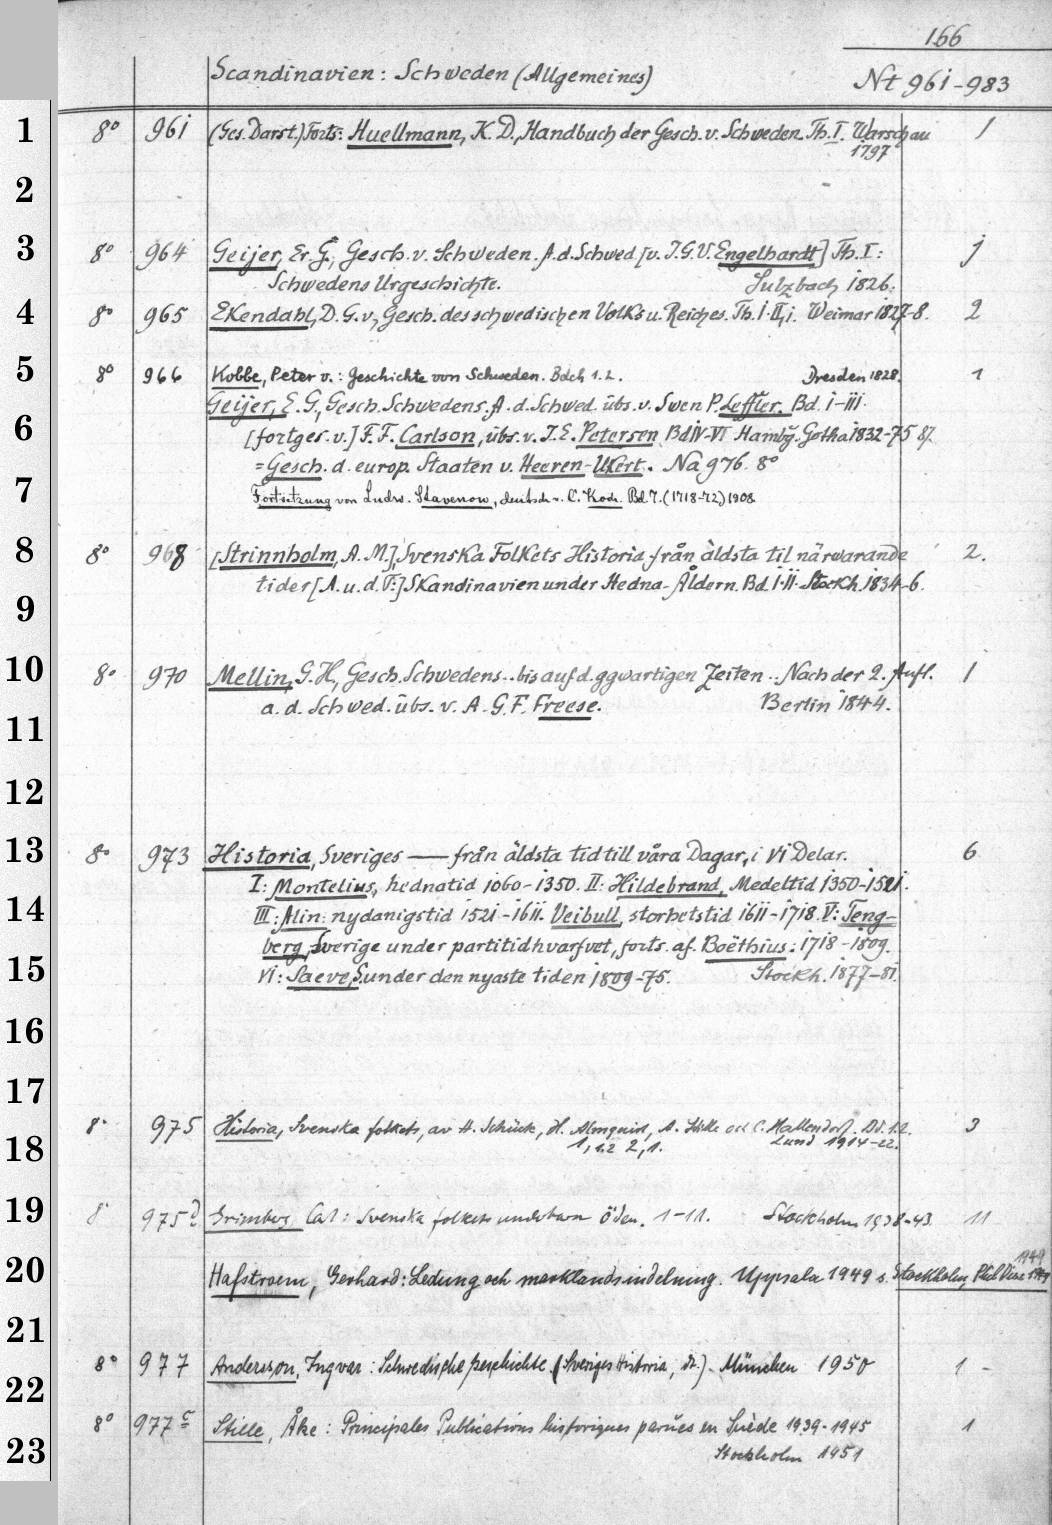 166
Scandinavien: Schweden (Allgemeines) Nt 961-983
1 8° 961 (Ges. Darst.) Forts: Huellmann, K. D., Handbuch der Gesch. v. Schweden. Th. I. Warschau 1
1797
2
3 8° 964 Geijer, Er. G., Gesch. v. Schweden. A. d. Schwed [v. J. G. V. Engelhardt] Th. I: 1
Schwedens Urgeschichte. Sulzbach 1826.
4 8° 965 Ekendahl, D. G. v., Gesch. des schwedischen Volks u. Reiches. Th. I. II, 1. Weimar 1827-8. 2
5 8° 966 Kobbe, Peter v.: Geschichte von Schweden. Bdch 1. 2. Dresden 1828. 1
Geijer, E. G., Gesch. Schwedens. A. d. Schwed. übs. v. Swen P. Leffler. Bd. I-III.
6 [fortges. v.] F. F. Carlson, übs. v. J. E. Petersen Bd IV-VI Hambg. Gotha 1832-75 87.
= Gesch. d. europ. Staaten v. Heeren-Ukert. Na 976. 8°
7 Fortsetzung von Ludw. Stavenow, deutsch v. C. Koch. Bd. 7. (1718-72) 1908
8 8° 968 [Strinnholm, A. M.] Svenska Folkets Historia från äldsta til närwarande 2.
tider [A. u. d. T:] Skandinavien under Hedna-Åldern. Bd I-II. Stockh. 1834-6.
9
10 8° 970 Mellin, G. H., Gesch. Schwedens .. bis auf d. ggwärtigen Zeiten .. Nach der 2. Aufl. 1
a. d. Schwed. übs. v. A. G. F. Freese. Berlin 1844.
11
12
13 8° 973 Historia, Sveriges — från äldsta tid till våra Dagar, i VI Delar. 6
I: Montelius, hednatid 1060-1350. II: Hildebrand, Medeltid 1350-1521.
14 III: Alin: nydanigstid 1521-1611. Veibull, storhetstid 1611-1718. V: Teng-
berg, Sverige under partitidhvarfvet, forts. af. Boëthius: 1718-1809.
15 VI: Saeve, S. under den nyaste tiden 1809-75. Stockh. 1877-81.
16
17
8° 975 Historia, Svenska folkets, av H. Schück, H. Almquist, A. Stille och C. Hallendorf. Bd. 1.2. 3
18 1, 1.2 2, 1. Lund 1914-22.
19 8° 975 Grimberg, Carl: Svenska folkets underbara öden. 1-11. Stockholm 1938-43. 11
1949
20 Hafstroem, Gerhard: Ledung och marklandsindelning. Uppsala 1949 s. Stockholm, Phil Diss
21
8° 977 Andersson, Ingvar: Schwedische Geschichte (Sveriges Historia, dt.). München 1950 1 -
22
8° 977 c Stille, Åke: Principales Publications historiques parues en Suède 1939-1945 1
23 Stockholm 1951